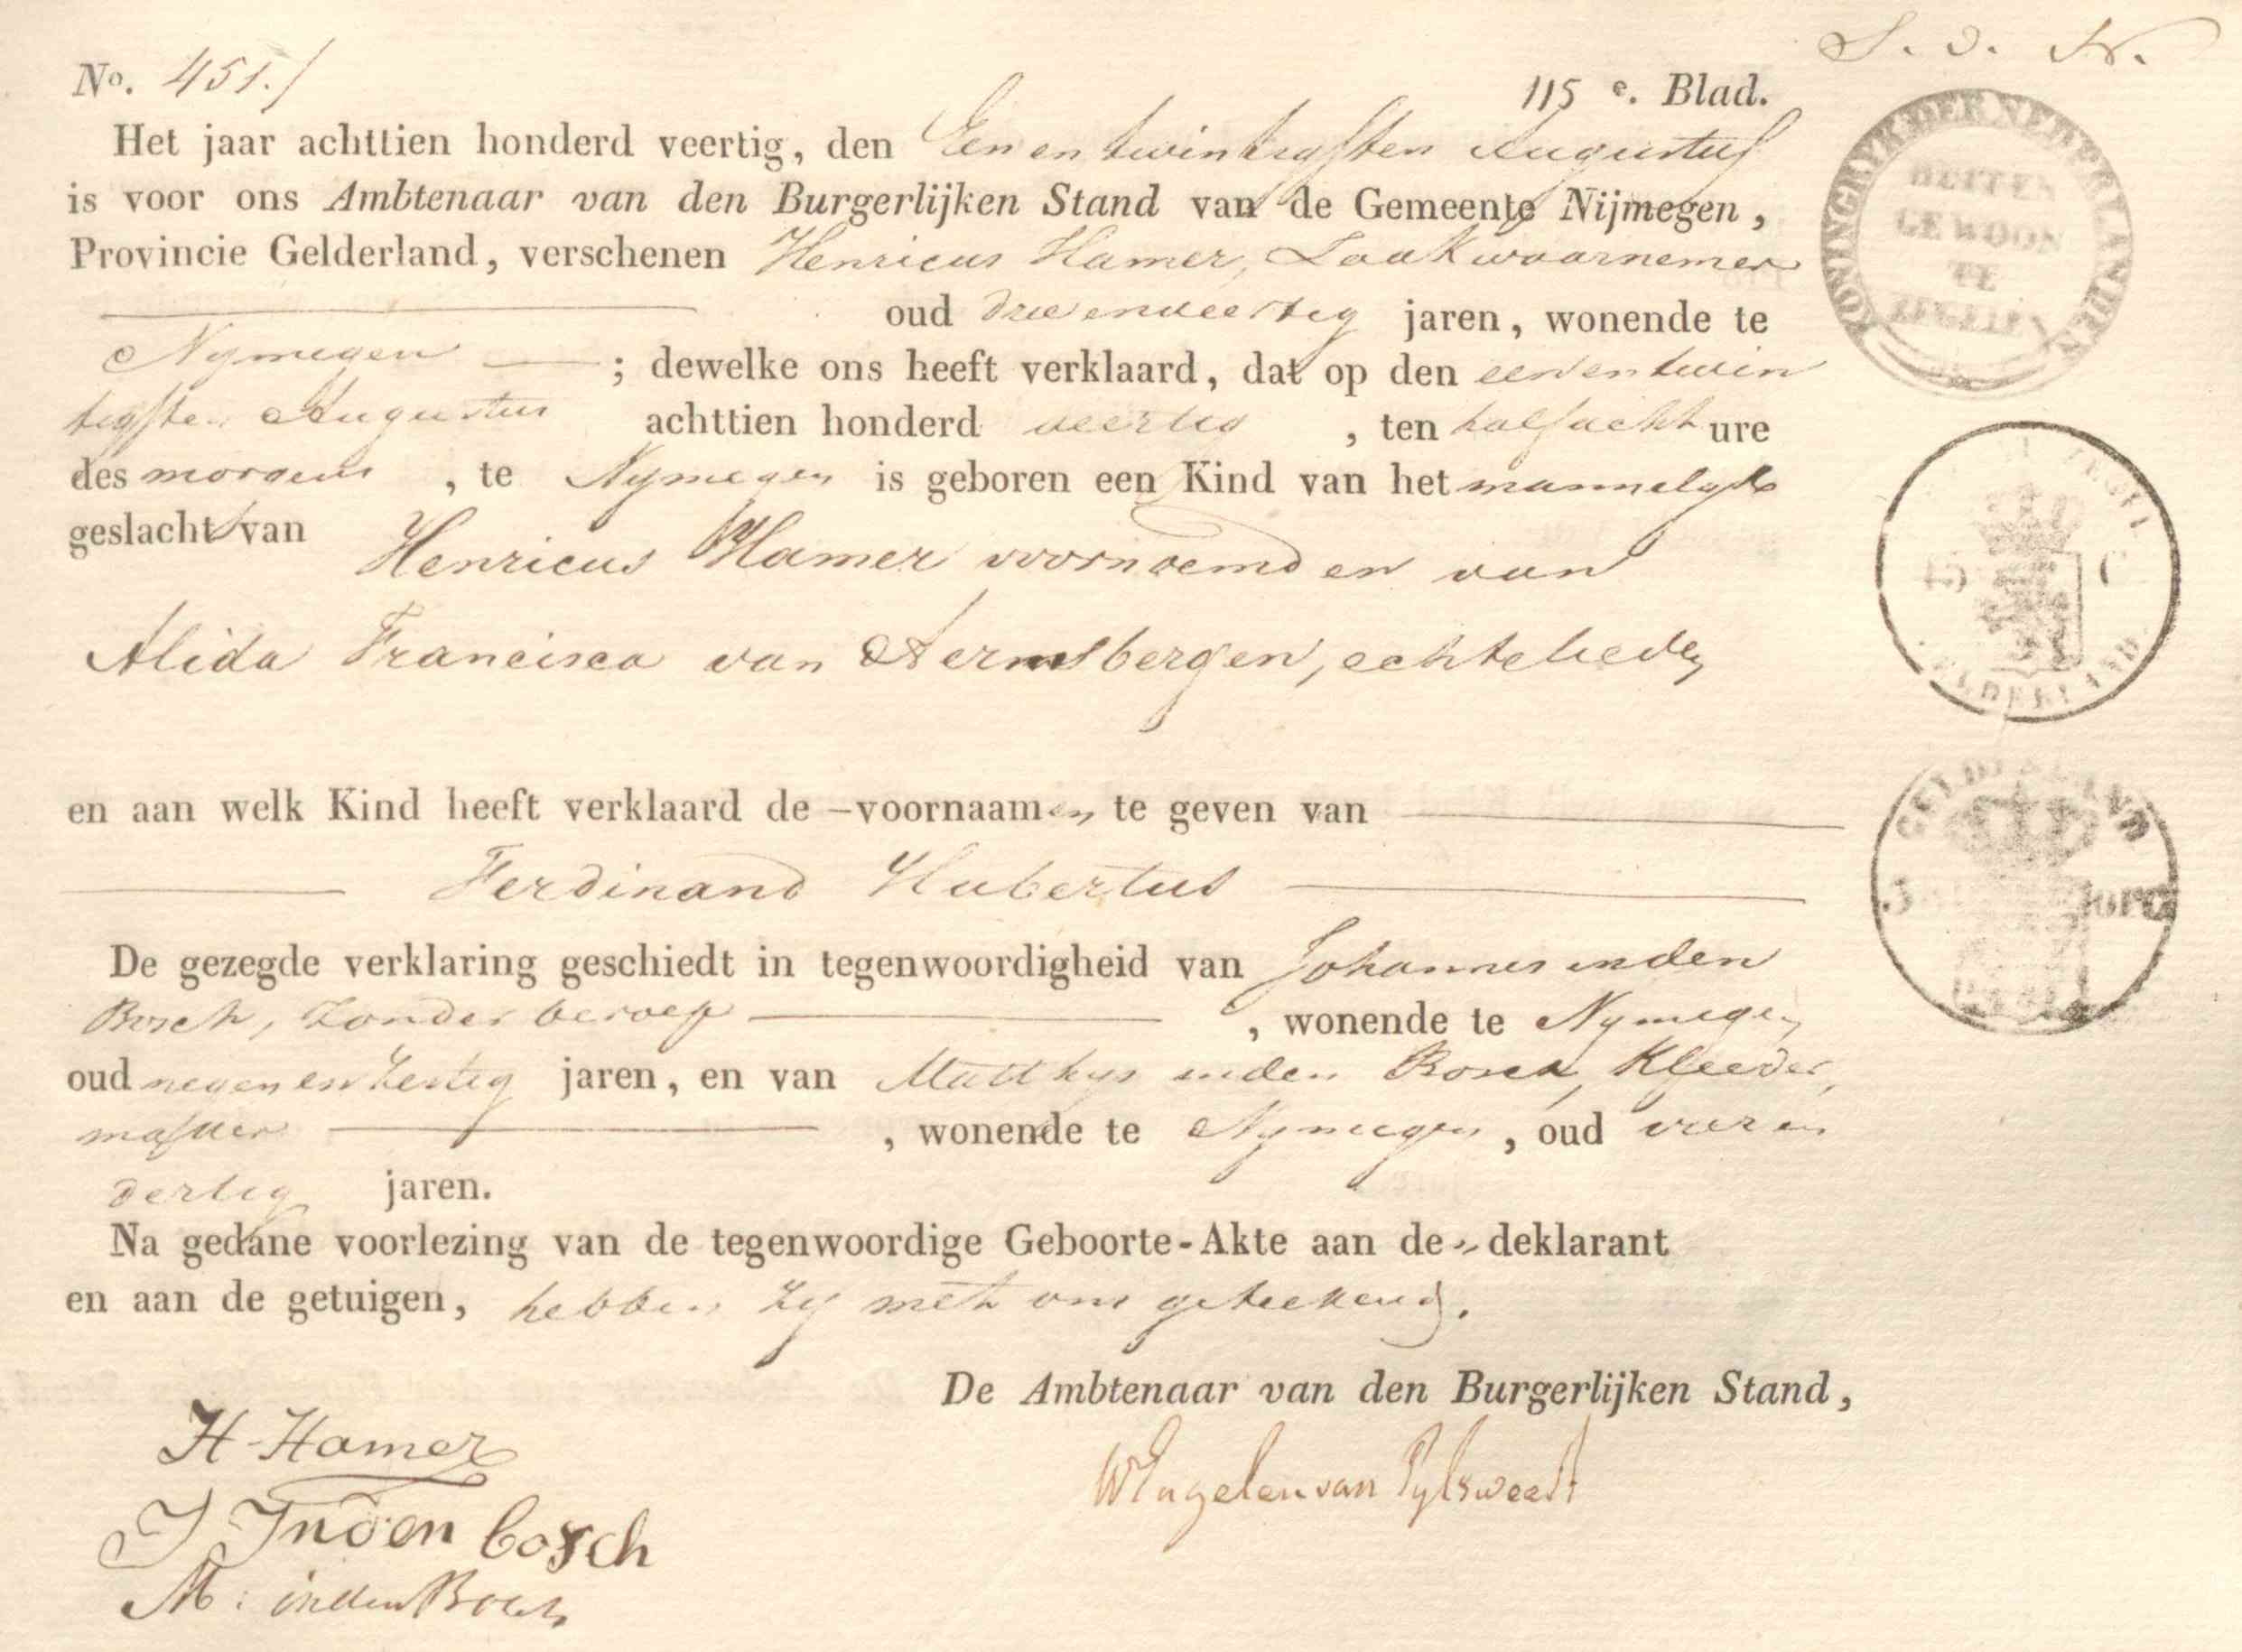 S. v. N.
No. 451.
115 e. Blad.
Het jaar achttien honderd veertig, den Een en twintigsten Augustus
is voor ons Ambtenaar van den Burgerlijken Stand van de Gemeente Nijmegen,
Provincie Gelderland, verschenen Henricus Hamer, Zaakwaarnemer
oud drieenveertig jaren, wonende te
Nymegen ; dewelke ons heeft verklaard, dat op den eenentwin
tigsten Augustus achttien honderd veertig , ten half acht ure
des morgens , te Nymegen is geboren een Kind van het mannelyk
geslacht van Henricus Hamer voornoemd en van
Alida Francisca van Aernsbergen, echtelieden
en aan welk Kind heeft verklaard de –voornaamen te geven van
Ferdinand Hubertus
De gezegde verklaring geschiedt in tegenwoordigheid van Johannes inden
Bosch, zonder beroep , wonende te Nymegen
oud negenenzestig jaren, en van Matthys inden Bosch, Kleeder
maker , wonende te Nymegen , oud vier en
dertig jaren.
Na gedane voorlezing van de tegenwoordige Geboorte-Akte aan de deklarant
en aan de getuigen, hebben zy met ons geteekend.
De Ambtenaar van den Burgerlijken Stand,
H Hamer
W Engelen van Pylsweert
J Inden bosch
M: inden Bosch
KONINGRYK DER NEDERLANDEN
BUITEN
GEWOON
TE
ZEGELEN
15 C
GELDERLAND